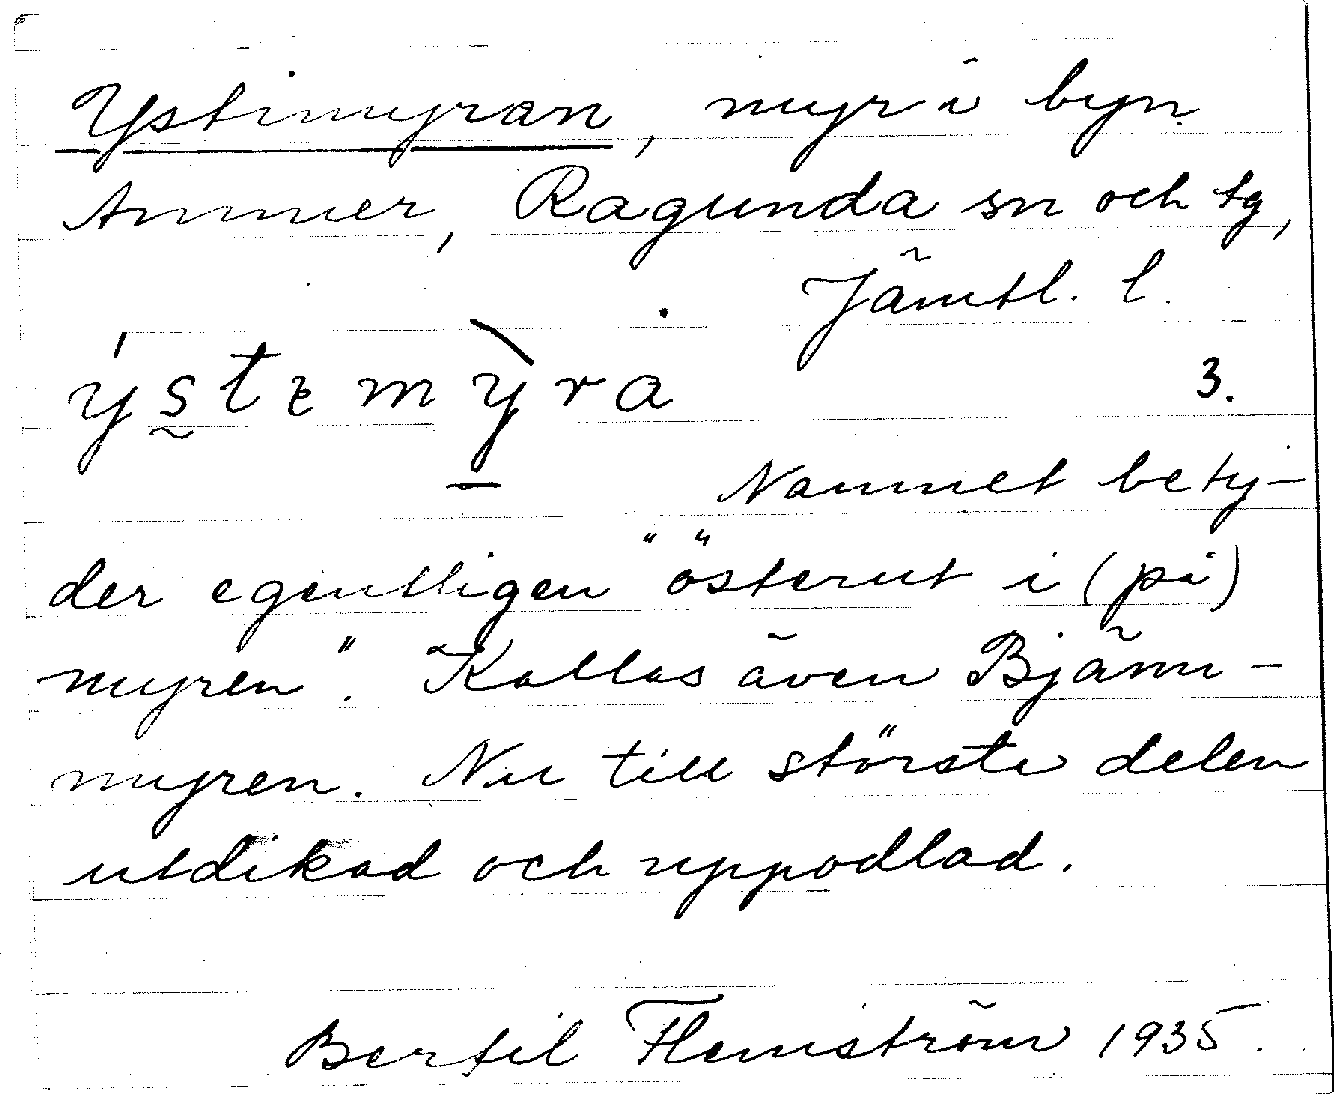 Ystimyran, myr i byn
Ammer, Ragunda sn och tg,
Jämtl. l.
ýstɛmỳra 3.
Namnet bety-
der egentligen "österut i (på)
myren". Kallas även Björn-
myren. Nu till största delen
utdikad och uppodlad.
Bertil Flemström 1935.